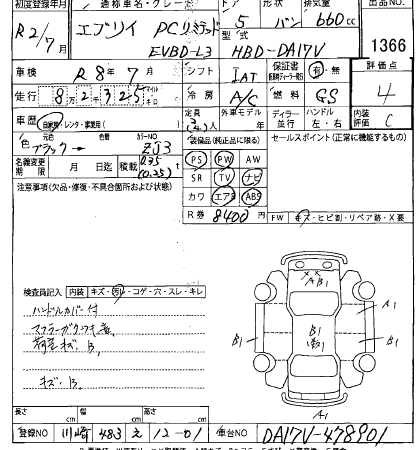 初度登録年月 通称車名・グレード ドア 形状 排気量 出品NO
R2/7月 エブリイ PCリミテッド 5 バン 660cc 1366
EVBD-L3 型式 HBD-DA17V
車検 R 8年 7月 シフト IAT 保証書 有・無 評価点
走行 8万2千325 マイル キロ 冷房 A/C 燃料 GS 4
車歴 自家用・レンタ・事業用( ) 定員 人 外車モデル 年 ディーラー 並行 ハンドル 左・右 内装評価 C
色 ブラック→ 色替 カラーNO ZJ3 装備品(純正品に限る) セールスポイント(正常に機能するもの)
名義変更期限 月 日迄 積載 0.35 (0.25) PS PW AW
注意事項(欠品・修復・不具合箇所および状態) SR TV ナビ
カワ エアB ABS
R券 8400円 FW キズ・ヒビ割・リペア跡・X要
検査員記入 内装 キズ・汚レ・コゲ・穴・スレ・キレ
ハンドルカバー付
荷室キズ、B
キズ・B
A B1
A1
B1
B1
B1
A1
長さ cm 幅 cm 高さ cm
登録NO 川崎 483 え 12-01 車台NO DA17V-478901